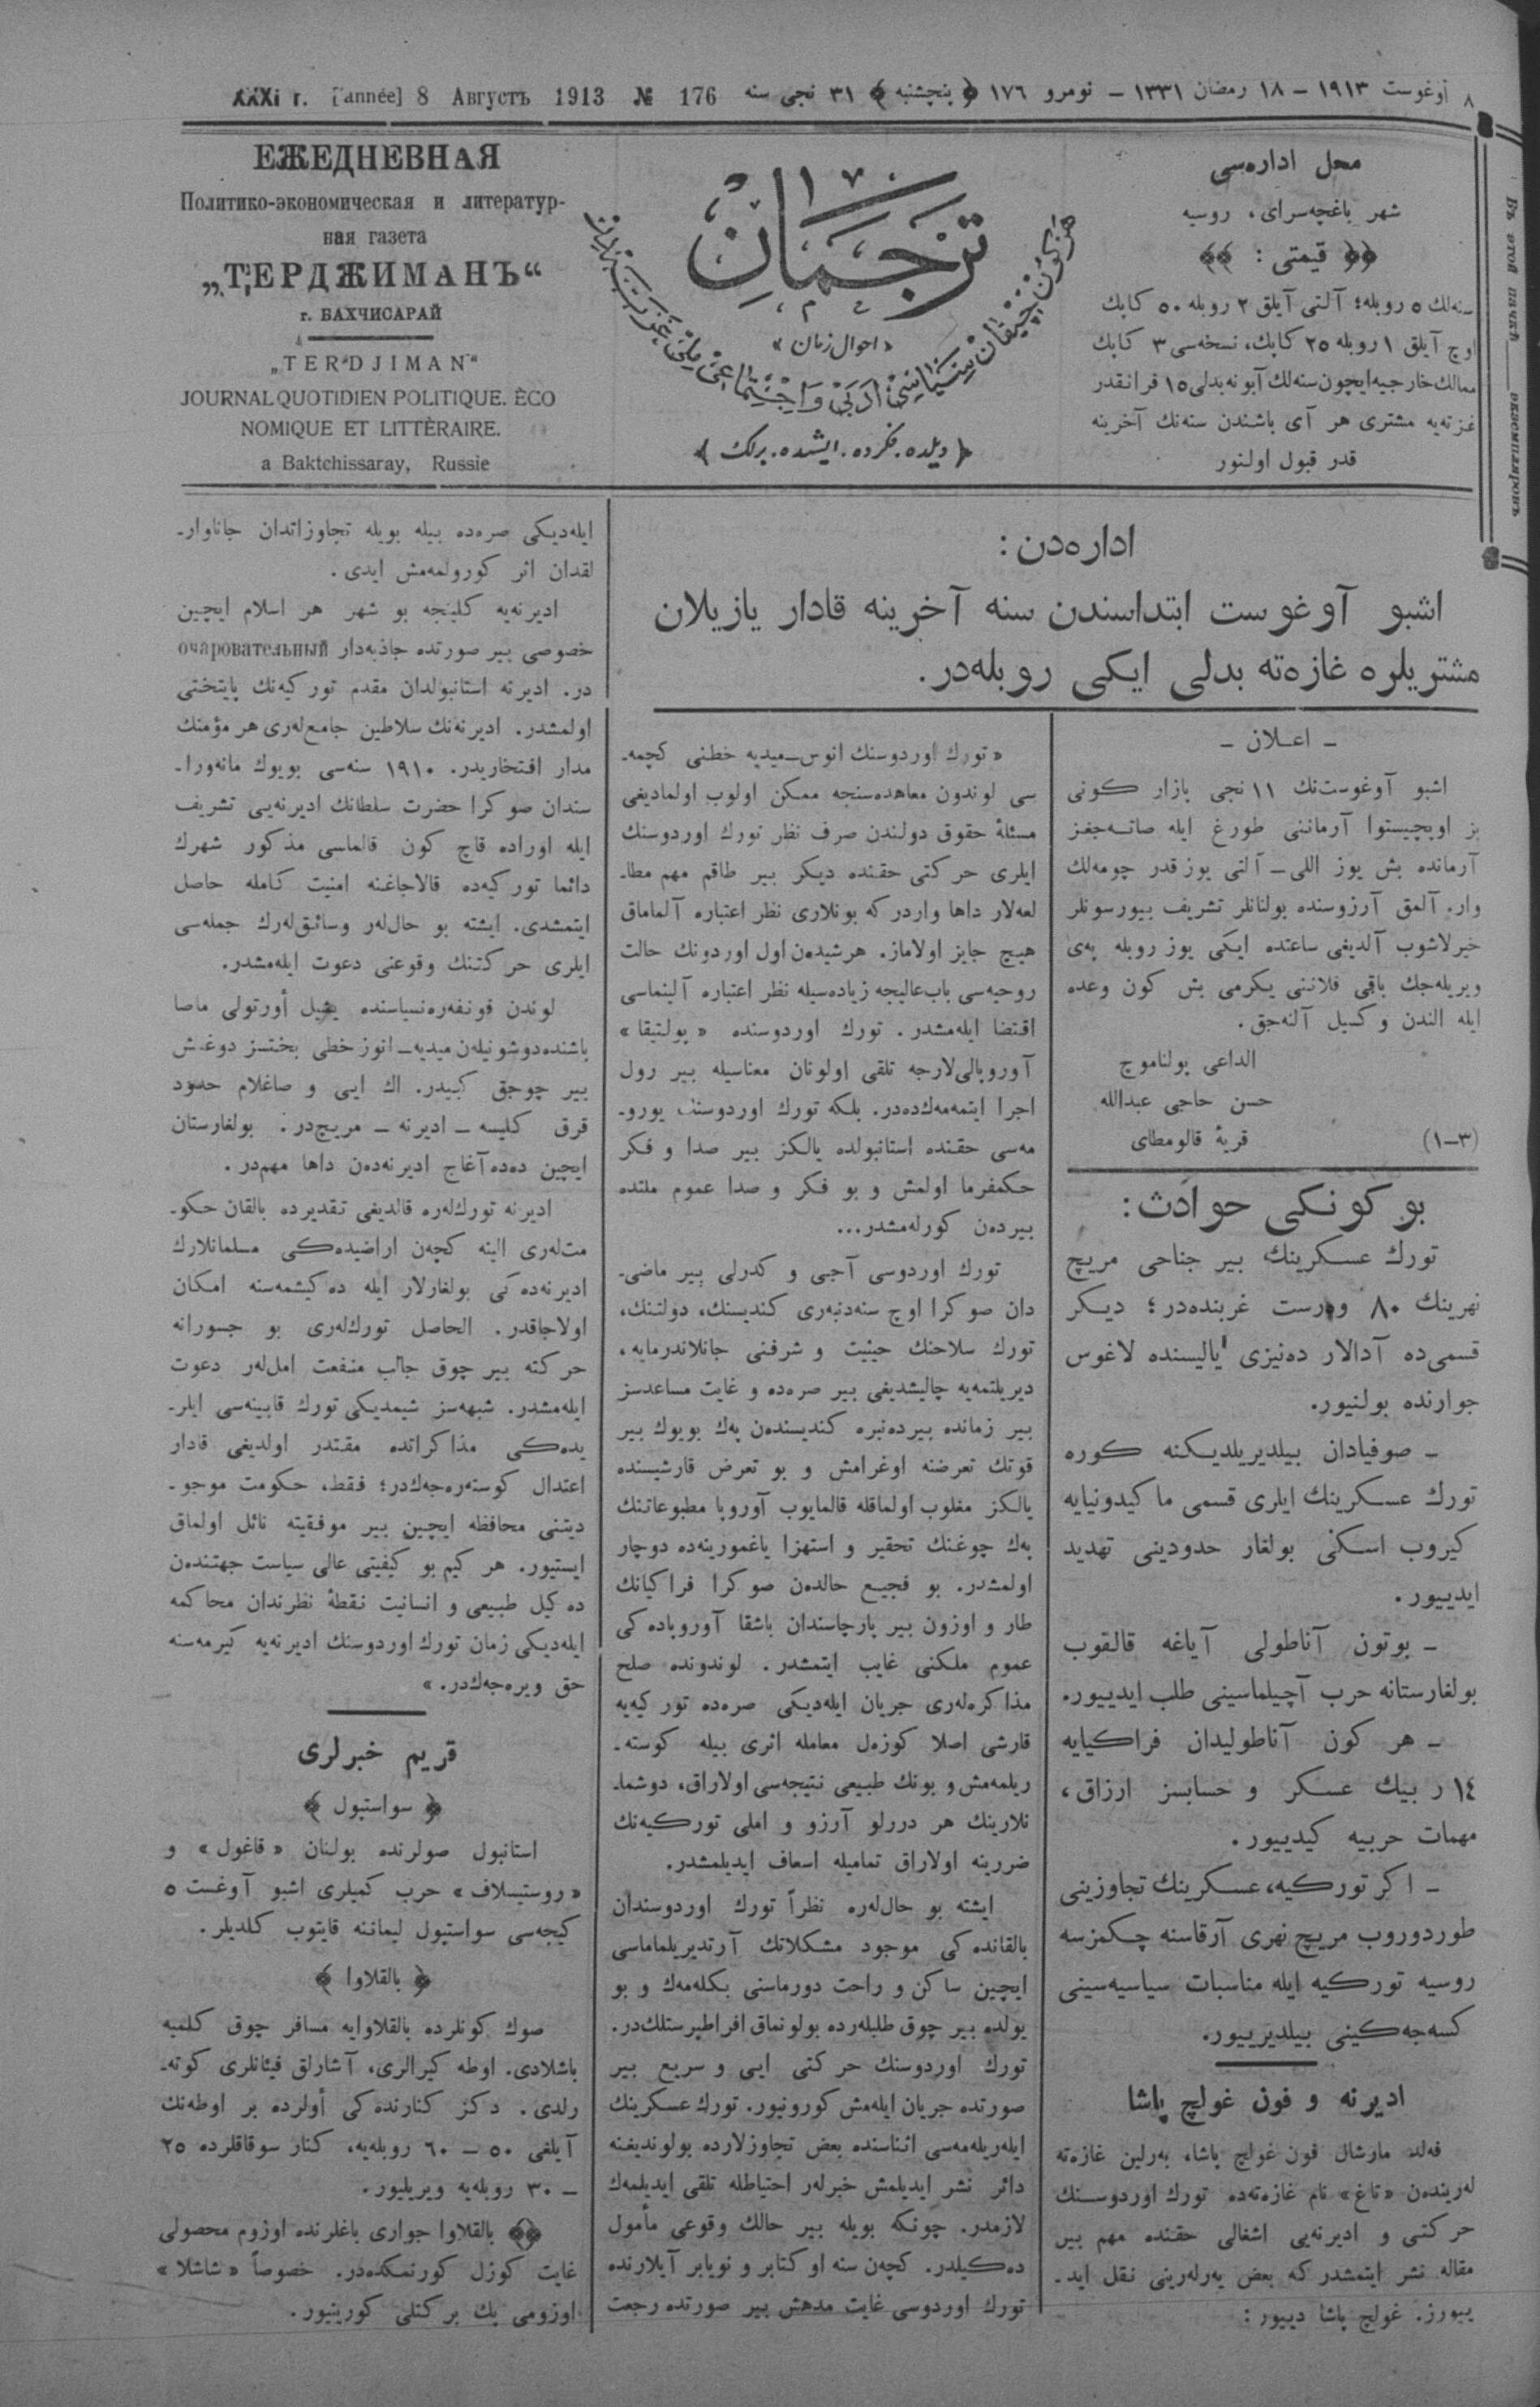 XXXI г. [année] 8 Августъ 1913 № 176
٨ اوغوست ١٩١٣ – ١٨ رمضان ١٣٣١ – نومرو ١٧٦ ﴿ پنچشنبه ﴾ ٣١ نجی سنه
ЕЖЕДНЕВНАЯ
Политико-экономическая и литератур-
ная газета
„ТЕРДЖИМАНЪ“
г. БАХЧИСАРАЙ
„TERDJIMAN“
JOURNAL QUOTIDIEN POLITIQUE. ÈCO
NOMIQUE ET LITTÈRAIRE.
a Baktchissaray, Russie
ترجمان
« احوال زمان »
هركون چیقان سیاسی ادبی و اجتماعی ملی غزته‌در
﴿ دیلده. فكرده. ایشده. برلك ﴾
محل اداره‌سی
شهر باغچه‌سرای، روسیه
قیمتی :
سنه‌لك ٥ روبله؛ آلتی آیلق ٢ روبله ٥٠ كاپك
اوچ آیلق ١ روبله ٢٥ كاپك، نسخه‌سی ٣ كاپك
ممالك خارجیه ایچون سنه‌لك آبونه بدلی ١٥ فرانقدر
غزته‌یه مشتری هر آی باشندن سنه‌نك آخرینه
قدر قبول اولنور
Въ этой пачкѣ ____ экземпляровъ
اداره‌دن :
اشبو آوغوست ابتداسندن سنه آخرینه قادار یازیلان
مشتریلره غازه‌ته بدلی ایكی روبله‌در.
– اعلان –
اشبو آوغوست‌نك ١١ نجی بازار كونی
بز اوپچیستوا آرماننی طورغ ایله صاته‌جغز
آرمانده بش یوز اللی – آلتی یوز قدر چومه‌لك
وار. آلمق آرزوسنده بولنانلر تشریف بیورسونلر
خبرلاشوب آلدیغی ساعتده ایكی یوز روبله پەی
ویریله‌جك باقی قلاننی یكرمی بش كون وعده
ایله الندن وكسیل آلنه‌جق.
الداعی پولناموچ
حسن حاجی عبدالله
قریۀ قالومطای
(٣–١)
بو كونكی حوادث :
تورك عسكرینك بیر جناحی مریچ
نهرینك ٨٠ ورست غربنده‌در؛ دیكر
قسمی‌ده آدالار ده‌نیزی یالیسنده لاغوس
جوارنده بولنیور.
– صوفیادان بیلدیریلدیكنه كوره
تورك عسكرینك ایلری قسمی ماكیدونیایه
كیروب اسكی بولغار حدودینی تهدید
ایدییور.
– بوتون آناطولی آیاغه قالقوب
بولغارستانه حرب آچیلماسینی طلب ایدییور.
– هر كون آناطولیدان فراكیایه
١٤ ر بیك عسكر و حسابسز ارزاق،
مهمات حربیه كیدییور.
– اكر توركیه، عسكرینك تجاوزینی
طوردوروب مریچ نهری آرقاسنه چكمزسه
روسیه توركیه ایله مناسبات سیاسیه‌سینی
كسه‌جه‌كینی بیلدیرییور.
ادیرنه و فون غولچ پاشا
فه‌لد مارشال فون غولچ پاشا، به‌رلین غازه‌ته
لەریندەن «تاغ» نام غازه‌ته‌ده تورك اوردوسنك
حركتی و ادیرنه‌یی اشغالی حقنده مهم بیر
مقاله نشر ایتمشدر كه بعض یەرلەرینی نقل اید-
ییورز. غولچ پاشا دییور :
« تورك اوردوسنك انوس–میدیه خطنی كچمه-
سی لوندون معاهده‌سنجه ممكن اولوب اولمادیغی
مسئلۀ حقوق دولندن صرف نظر تورك اوردوسنك
ایلری حركتی حقنده دیكر بیر طاقم مهم مطا-
لعه‌لار داها واردر كه بونلاری نظر اعتباره آلماماق
هیچ جایز اولاماز. هرشیدەن اول اوردونك حالت
روحیه‌سی باب‌عالیجه زیاده‌سیله نظر اعتباره آلینماسی
اقتضا ایله‌مشدر. تورك اوردوسنده « پولتیقا »
آوروپالی‌لارجه تلقی اولونان معناسیله بیر رول
اجرا ایتمه‌مه‌كده‌در. بلكه تورك اوردوسنك یورو-
مه‌سی حقنده استانبولده یالكز بیر صدا و فكر
حكمفرما اولمش و بو فكر و صدا عموم ملتده
بیردەن كورله‌مشدر...
تورك اوردوسی آجی و كدرلی بیر ماضی-
دان صوكرا اوچ سنه‌دنبەری كندیسنك، دولتنك،
تورك سلاحنك حیثیت و شرفنی جانلاندرمایه،
دیریلتمه‌یه چالیشدیغی بیر صره‌ده و غایت مساعدسز
بیر زمانده بیردەنبره كندیسندەن پەك بویوك بیر
قوتك تعرضنه اوغرامش و بو تعرض قارشیسنده
یالكز مغلوب اولماقله قالمایوب آوروپا مطبوعاتنك
پەك چوغنك تحقیر و استهزا یاغمورینه‌ده دوچار
اولمشدر. بو فجیع حالدەن صوكرا فراكیانك
طار و اوزون بیر پارچاسندان باشقا آوروپاده‌كی
عموم ملكنی غایب ایتمشدر. لوندونده صلح
مذاكره‌لەری جریان ایله‌دیكی صره‌ده توركیه‌یه
قارشی اصلا كوزەل معامله اثری بیله كوسته-
ریلمه‌مش و بونك طبیعی نتیجه‌سی اولاراق، دوشما-
نلارینك هر درلو آرزو و املی توركیه‌نك
ضررینه اولاراق تمامیله اسعاف ایدیلمشدر.
ایشته بو حال‌لەره نظراً تورك اوردوسندان
بالقانده‌كی موجود مشكلاتك آرتدیریلماماسی
ایچین ساكن و راحت دورماسنی بكله‌مەك و بو
یولده بیر چوق طلبلەرده بولونماق افراطپرستلك‌در.
تورك اوردوسنك حركتی ایی و سریع بیر
صورتده جریان ایله‌مش كورونیور. تورك عسكرینك
ایلەریله‌مه‌سی اثناسنده بعض تجاوزلارده بولوندیغنه
دائر نشر ایدیلمش خبرلەر احتیاطله تلقی ایدیلمەك
لازمدر. چونكه بویله بیر حالك وقوعی مأمول
ده‌كیلدر. كچن سنه اوكتابر و نویابر آیلارنده
تورك اوردوسی غایت مدهش بیر صورتده رجعت
ایله‌دیكی صره‌ده بیله بویله تجاوزاتدان جاناوار-
لقدان اثر كورولمه‌مش ایدی.
ادیرنه‌یه كلینجه بو شهر هر اسلام ایچین
خصوصی بیر صورتده جاذبه‌دار очаровательный
در. ادیرنه استانبولدان مقدم توركیه‌نك پایتختی
اولمشدر. ادیرنه‌نك سلاطین جامع‌لەری هر مؤمنك
مدار افتخاریدر. ١٩١٠ سنه‌سی بویوك مانه‌ورا-
سندان صوكرا حضرت سلطانك ادیرنه‌یی تشریف
ایله اوراده قاچ كون قالماسی مذكور شهرك
دائما توركیه‌ده قالاجاغنه امنیت كامله حاصل
ایتمشدی. ایشته بو حال‌لەر وسائق‌لەرك جمله‌سی
ایلری حركتنك وقوعنی دعوت ایله‌مشدر.
لوندن قونفه‌ره‌نسیاسنده یشیل اورتولی ماصا
باشنده دوشونیلەن میدیه–انوز خطی بختسز دوغمش
بیر چوجق كبیدر. اك ایی و صاغلام حدود
قرق كلیسه – ادیرنه – مریچ‌در. بولغارستان
ایچین دەدەآغاج ادیرنه‌دەن داها مهم‌در.
ادیرنه تورك‌لەره قالدیغی تقدیرده بالقان حكو-
مت‌لەری الینه كچەن اراضیده‌كی مسلمانلارك
ادیرنه‌ده‌كی بولغارلار ایله ده‌كیشمه‌سنه امكان
اولاجاقدر. الحاصل تورك‌لەری بو جسورانه
حركته بیر چوق جالب منفعت امل‌لەر دعوت
ایله‌مشدر. شبهه‌سز شیمدیكی تورك قابینه‌سی ایلر-
یده‌كی مذاكراتده مقتدر اولدیغی قادار
اعتدال كوسته‌ره‌جه‌كدر؛ فقط، حكومت موجو-
دیتنی محافظه ایچین بیر موفقیته نائل اولماق
ایستیور. هر كیم بو كیفیتی عالی سیاست جهتندەن
ده‌كیل طبیعی و انسانیت نقطۀ نظرندان محاكمه
ایله‌دیكی زمان تورك اوردوسنك ادیرنه‌یه كیرمه‌سنه
حق ویره‌جه‌كدر. »
قریم خبرلری
﴿ سواستپول ﴾
استانبول صولرنده بولنان « قاغول » و
« روستیسلاف » حرب كمیلری اشبو آوغست ٥
كیجه‌سی سواستپول لیماننه قایتوب كلدیلر.
﴿ بالقلاوا ﴾
صوك كونلرده بالقلاوایه مسافر چوق كلمیه
باشلادی. اوطه كیرالری، آشارلق فیئانلری كوته-
رلدی. دكز كنارنده‌كی أولرده بر اوطه‌نك
آیلغی ٥٠ – ٦٠ روبله‌یه، كنار سوقاقلرده ٢٥
– ٣٠ روبله‌یه ویریلیور.
بالقلاوا جواری باغلرنده اوزوم محصولی
غایت كوزل كورنمكده‌در. خصوصاً « شاشلا »
اوزومی پك بركتلی كورینیور.